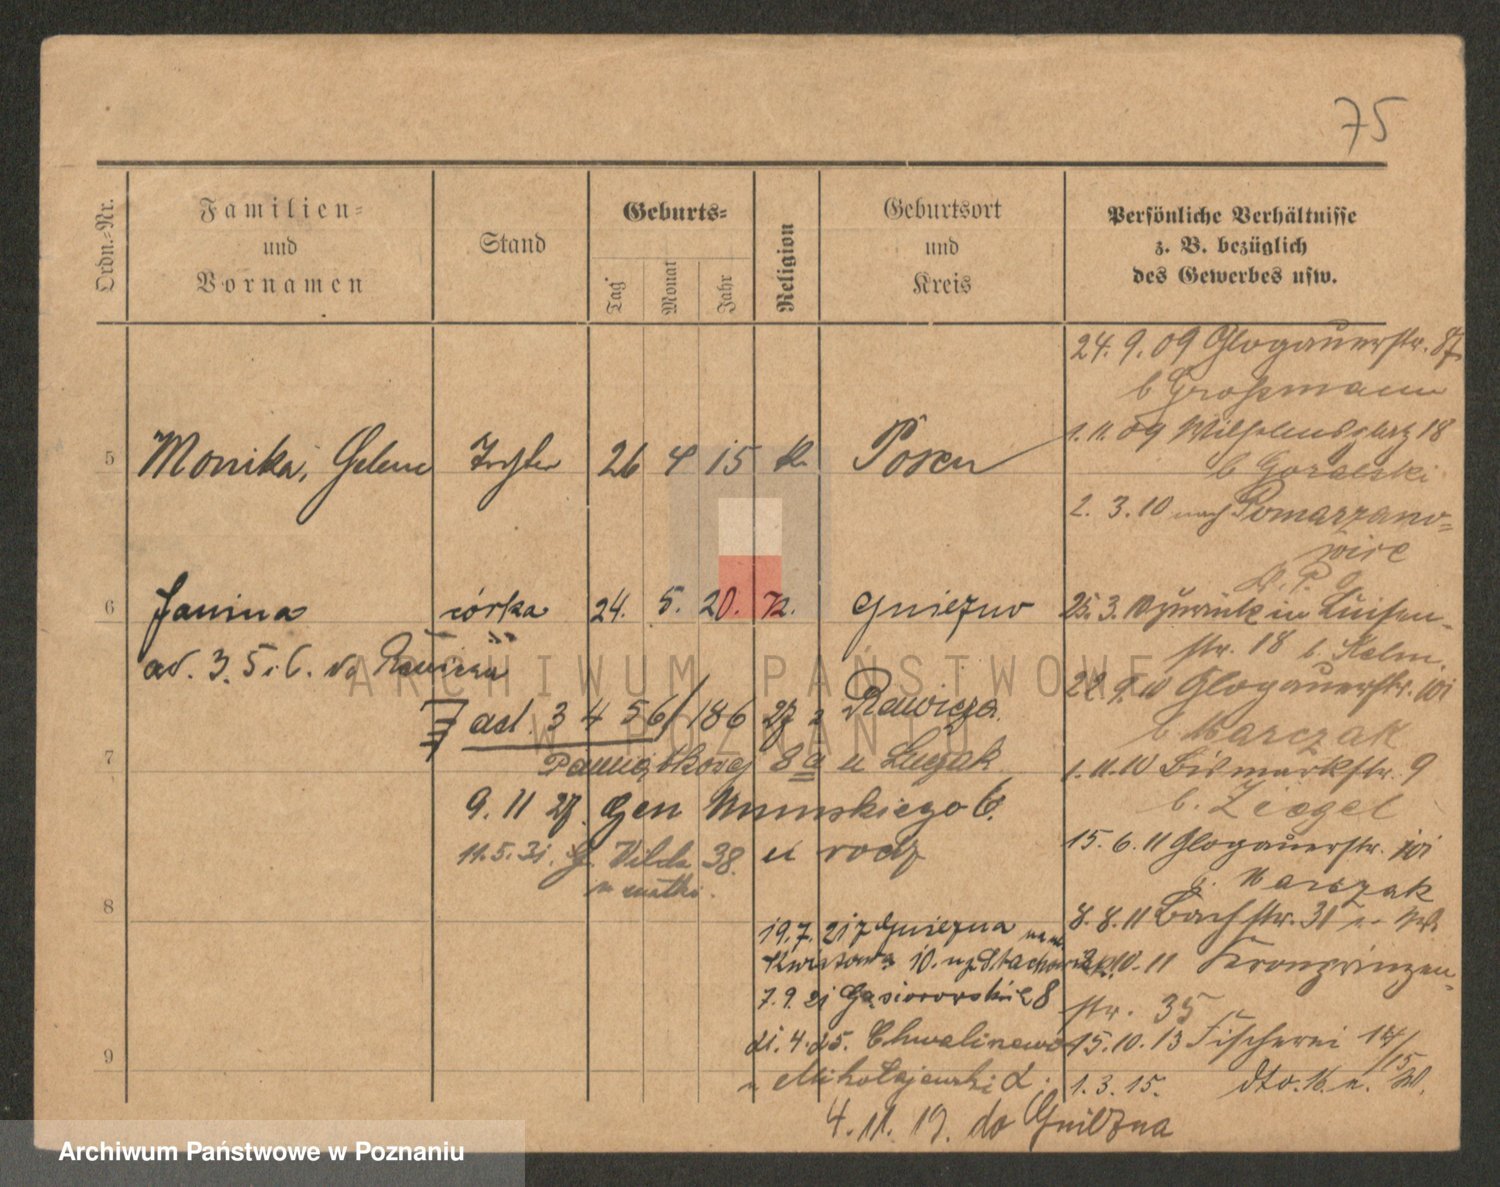 75
Ordn.-Nr.
Familien-
und
Vornamen
Stand
Geburts-
Tag
Monat
Jahr
Religion
Geburtsort
und
Kreis
Persönliche Verhältnisse
z. B. bezüglich
des Gewerbes usw.
5
Monika, Helene
Tochter
26 4 15 k.
Posen
6
Janina
córka
24. 5. 20. k.
Gniezno
ad. 3. 5 i 6. do Rawicza
ad. 3 4 5 6/186 27 z Rawicza
7
8a u
9. 11 27. Gen 6.
11.5.31. G. Wilda 38. u rodz
u matki.
8
19. 7. 21 z Gniezna
10.
7. 9. 21 Gąsiorowskich 8
21. 4. 25. Chwaliszewo
9
u Mikołajewski
4. 11. 19. do Gniezna
24. 9. 09 Glogauerstr. 87
b Großmann
1. 11. 09 Wilhelmsplatz 18
b Goralski
2. 3. 10 nach Pomarzano-
wice
25. 3. 10 zurück in Luisen-
str. 18 b.
22. 9. 10 Glogauerstr. 101
b. Marczak
1. 11. 10 Bismarkstr. 9
b. Ziegel
15. 6. 11 Glogauerstr. 101
b. Marczak
8. 8. 11 Bachstr. 31
10. 11 Kronprinzen-
str. 35
15. 10. 13 Fischerei 14/15
1. 3. 15. dto. 16
ARCHIWUM PAŃSTWOWE
W POZNANIU
Archiwum Państwowe w Poznaniu